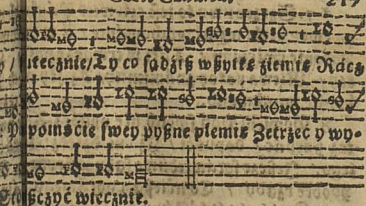 219
y / utecznie/Ty co sądziß wßytkę źiemię Racz
pomśćie swey pyßne plemię Zetrzeć y wy-
ßczyć wiecznie.